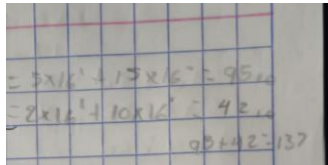 = 5x16¹ + 15x16⁰ = 95₁₀
= 2x16¹ + 10x16⁰ = 42₁₀
95+42=137